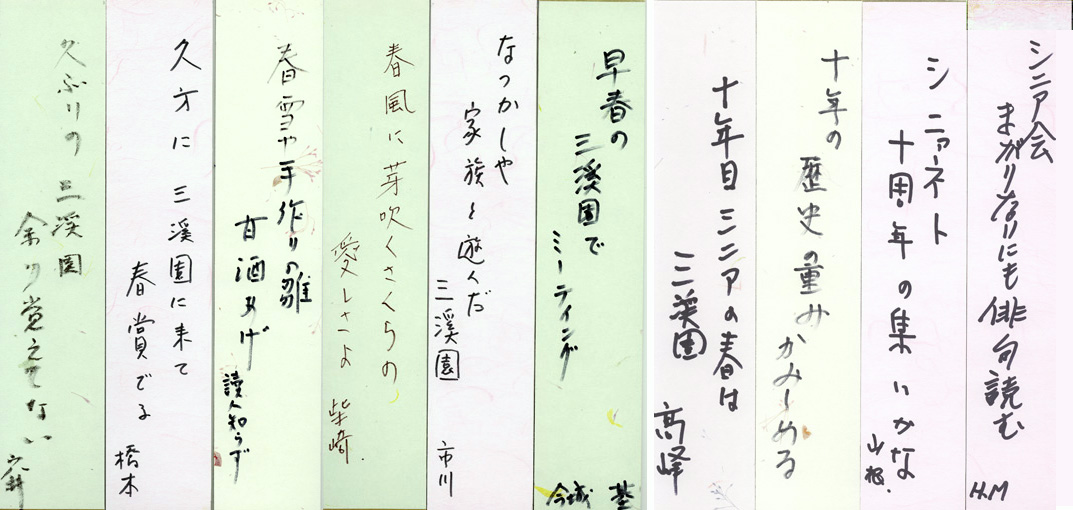 シニア会
まがりなりにも俳句読む
H.M
シニアネト
十周年の集いかな
山根
十年の
歴史の重み
かみしめる
十年目シニアの春は
三溪園
高峰
早春の
三溪園で
ミーティング
今城 基
なつかしや
家族と遊んだ
三溪園
市川
春風に芽吹くさくらの
愛しさよ 柴崎
春雪や手作りの雛
甘酒あげ
読人知らず
久方に三溪園に来て
春賞でる
橋本
久ぶりの三溪園
余り覚えてない